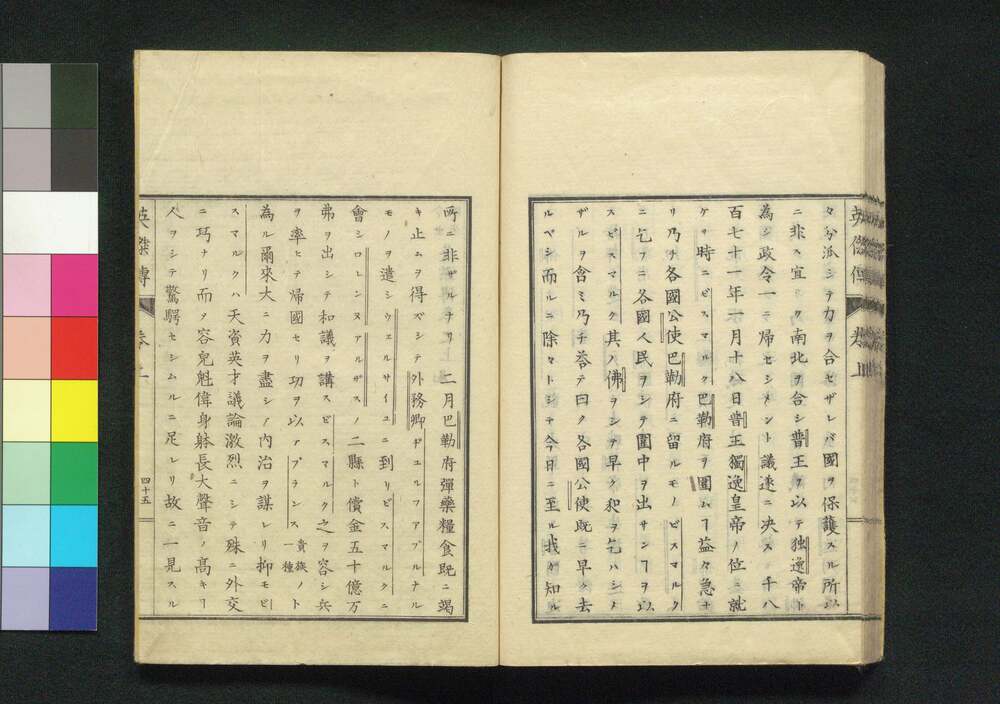 々分派シテ力ヲ合セザレバ國ヲ保護スル所以
ニ非ス宜シク南北ヲ合シ普王ヲ以テ独逸帝ト
為シ政令一ニ帰セシメント議遂ニ决ス一千八
百七十一年一月十八日普王獨逸皇帝ノ位ニ就
ケリ時ニビスマルク巴勒府ヲ圍ムヿ益々急ナ
リ乃チ各國公使巴勒府ニ留ルモノビスマルク
ニ乞フニ各國人民ヲシテ圍中ヲ出サンヿヲ以ス
ビスマルク其ノ佛ヲシテ早ク和ヲ乞ハシメ
ザルヲ含ミ乃チ荅テ曰ク各國公使既ニ早ク去
ルベシ而ルニ除々トシテ今日ニ至ル我ガ知ル
所ニ非ザルナリ 二月巴勒府彈藥糧食既ニ竭
キ止ムヲ得ズシテ外務卿ヂュルフアブルナル
モノヲ遣シウェルサイユニ到リビスマルクニ
會シロレンヌアルザスノ二縣ト償金五十億万
弗ヲ出シテ和議ヲ講スビスマルク之ヲ容シ兵
ヲ率ヒテ帰國セリ功ヲ以テプランス貴族ノ一種ト
為ル爾來大ニカヲ盡シテ内治ヲ謀レリ抑モビ
スマルクハ天資英才議論激烈ニシテ殊ニ外交
ニ巧ナリ而シテ容皃魁偉身躰長大聲音ノ高キヿ
人ヲシテ驚愕セシムルニ足レリ故ニ一見スル
英傑傳
卷上
四十五